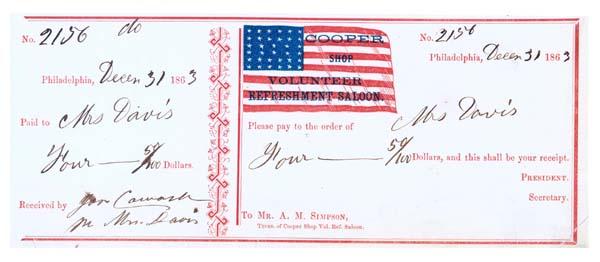 No. 2156 do
Philadelphia, Decem 31 1863
Paid to Mrs Davis
Four — 50/100 Dollars.
Received by
pr Mrs. Davis
COOPER
SHOP
VOLUNTEER
REFRESHMENT SALOON.
No. 2156
Philadelphia, Decem 31 1863
Please pay to the order of Mrs Davis
Four — 50/100 Dollars, and this shall be your receipt.
PRESIDENT.
Secretary.
To MR. A. M. SIMPSON,
Treas. of Cooper Shop Vol. Ref. Saloon.